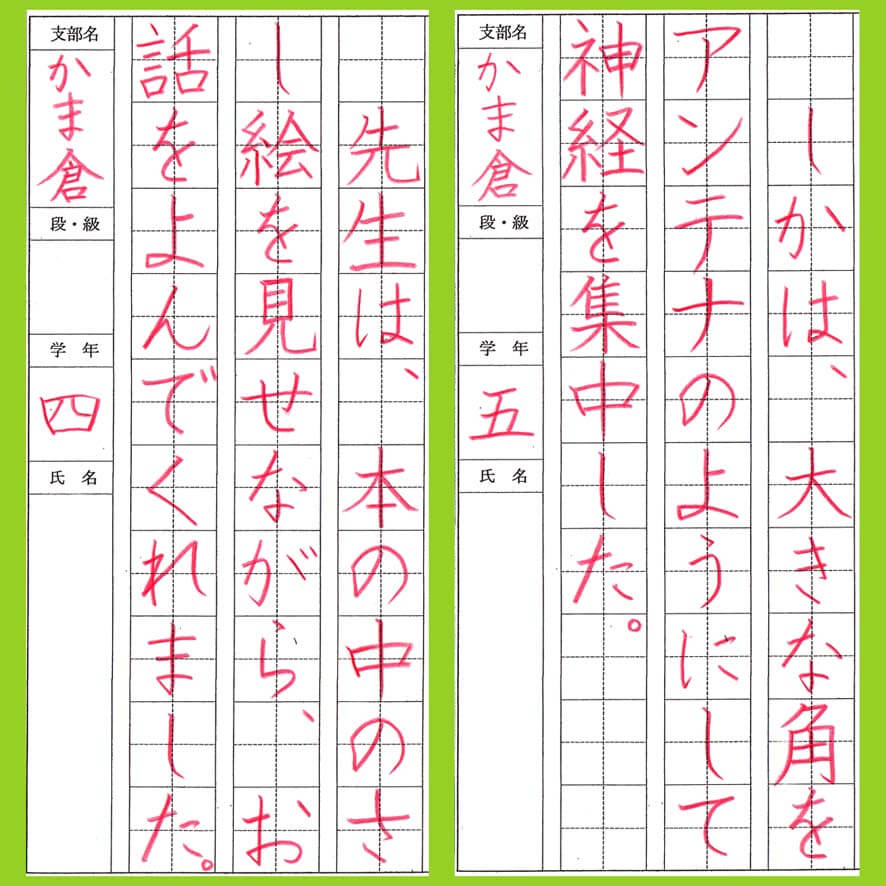 しかは、大きな角を
アンテナのようにして
神経を集中した。
支部名
かま倉
段・級
学年
五
氏名
先生は、本の中のさ
し絵を見せながら、お
話をよんでくれました。
支部名
かま倉
段・級
学年
四
氏名